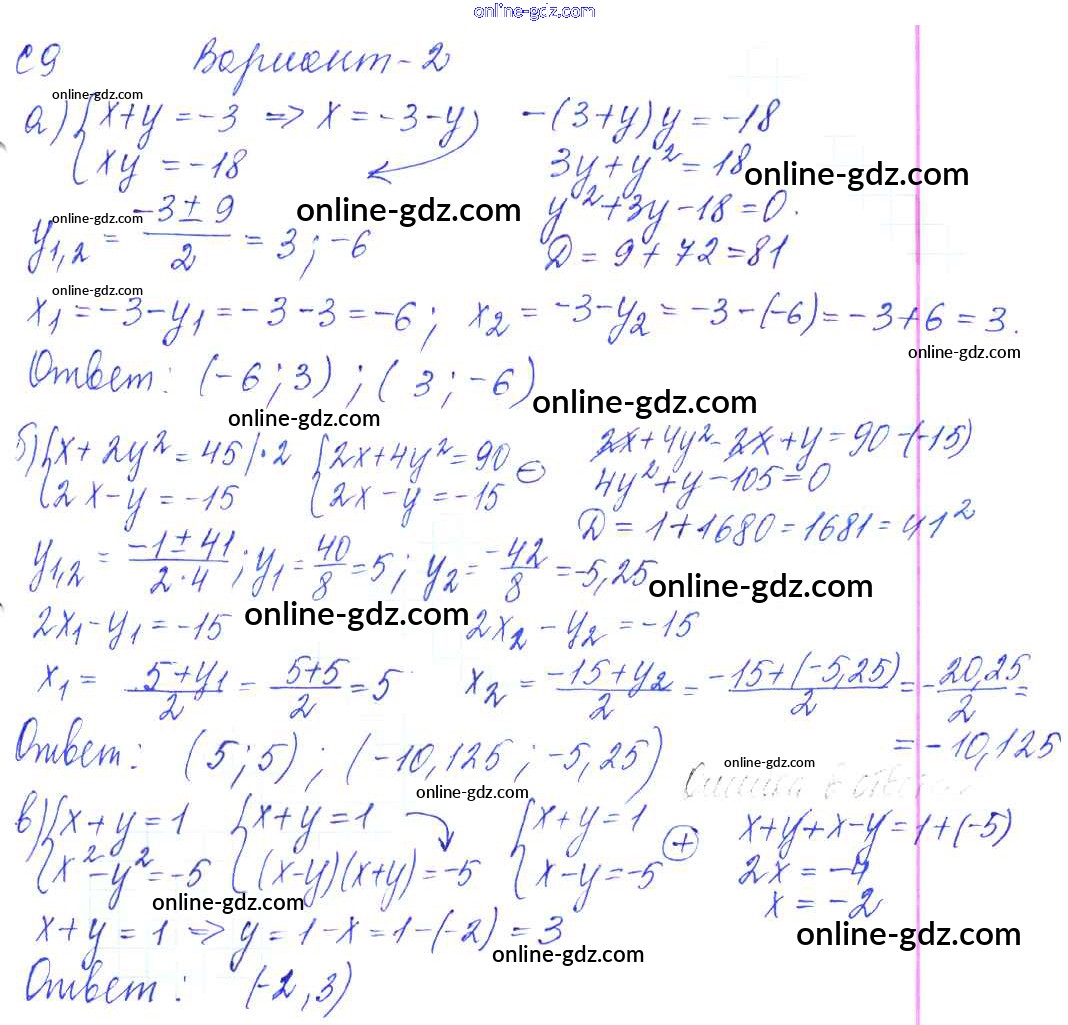 online-gdz.com
С9 Вариант-2
online-gdz.com
а) { x+y = -3 => x = -3-y ) -(3+y)y = -18
xy = -18 3y+y² = 18
online-gdz.com
online-gdz.com online-gdz.com
y² + 3y - 18 = 0.
y1,2 = (-3 ± 9)/2 = 3 ; -6 D = 9 + 72 = 81
online-gdz.com
x1 = -3-y1 = -3-3 = -6 ; x2 = -3-y2 = -3-(-6) = -3+6 = 3.
online-gdz.com
Ответ: (-6 ; 3) ; ( 3 ; -6)
online-gdz.com online-gdz.com
б) { x + 2y² = 45 |·2 { 2x+4y² = 90 ⊖ 2x + 4y² - 2x + y = 90 -(-15)
2x-y = -15 2x - y = -15 4y² + y - 105 = 0
D = 1 + 1680 = 1681 = 41²
y1,2 = (-1 ± 41)/(2·4) ; y1 = 40/8 = 5 ; y2 = -42/8 = -5,25
online-gdz.com online-gdz.com
2x1 - y1 = -15 2x2 - y2 = -15
x1 = (5+y1)/2 = (5+5)/2 = 5 x2 = (-15+y2)/2 = (-15+(-5,25))/2 = -20,25/2 =
= -10,125
Ответ: (5 ; 5) ; (-10,125 ; -5,25)
online-gdz.com
online-gdz.com
в) { x+y = 1 { x+y = 1 { x+y = 1 ⊕ x+y+x-y = 1+(-5)
x² - y² = -5 (x-y)(x+y) = -5 x-y = -5 2x = -4
online-gdz.com x = -2
x+y = 1 => y = 1-x = 1-(-2) = 3
online-gdz.com
online-gdz.com
Ответ: (-2, 3)